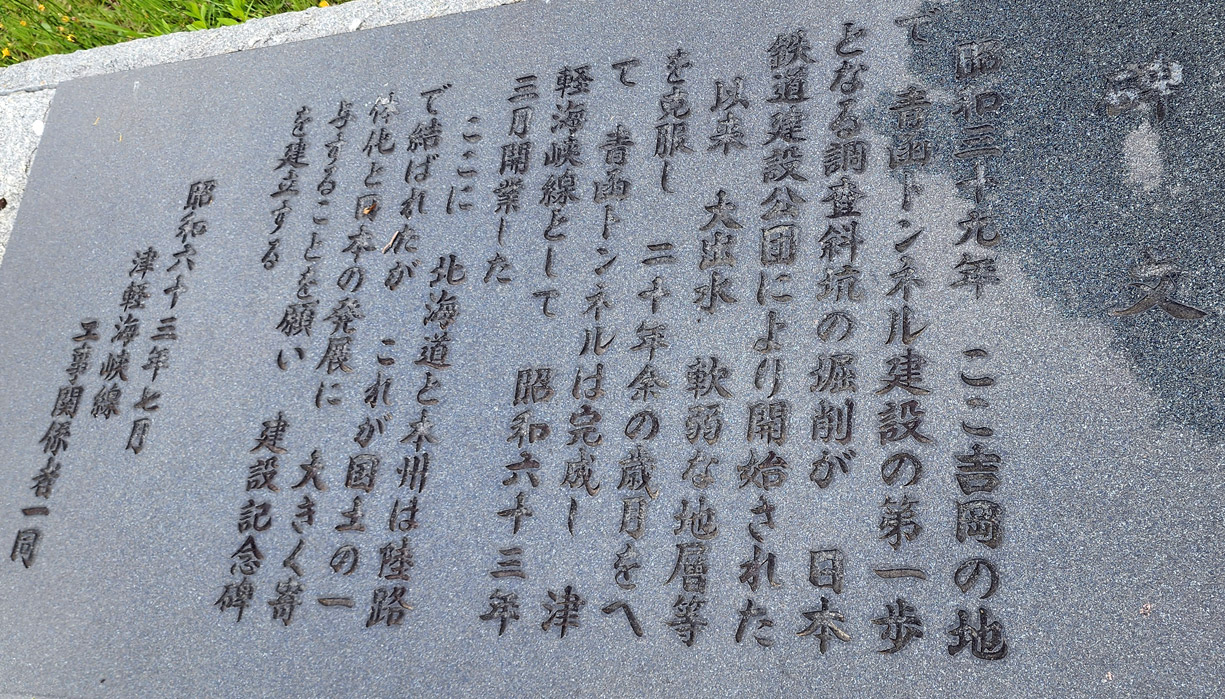 碑文
昭和三十九年　ここ吉岡の地
で　青函トンネル建設の第一歩
となる調査斜坑の堀削が　日本
鉄道建設公団により開始された
以来　大出水　軟弱な地層等
を克服し　二十年余の歳月をへ
て　青函トンネルは完成し　津
軽海峡線として　昭和六十三年
三月開業した
ここに　北海道と本州は陸路
で結ばれたが　これが国土の一
体化と日本の発展に　大きく寄
与することを願い　建設記念碑
を建立する
昭和六十三年七月
津軽海峡線
工事関係者一同